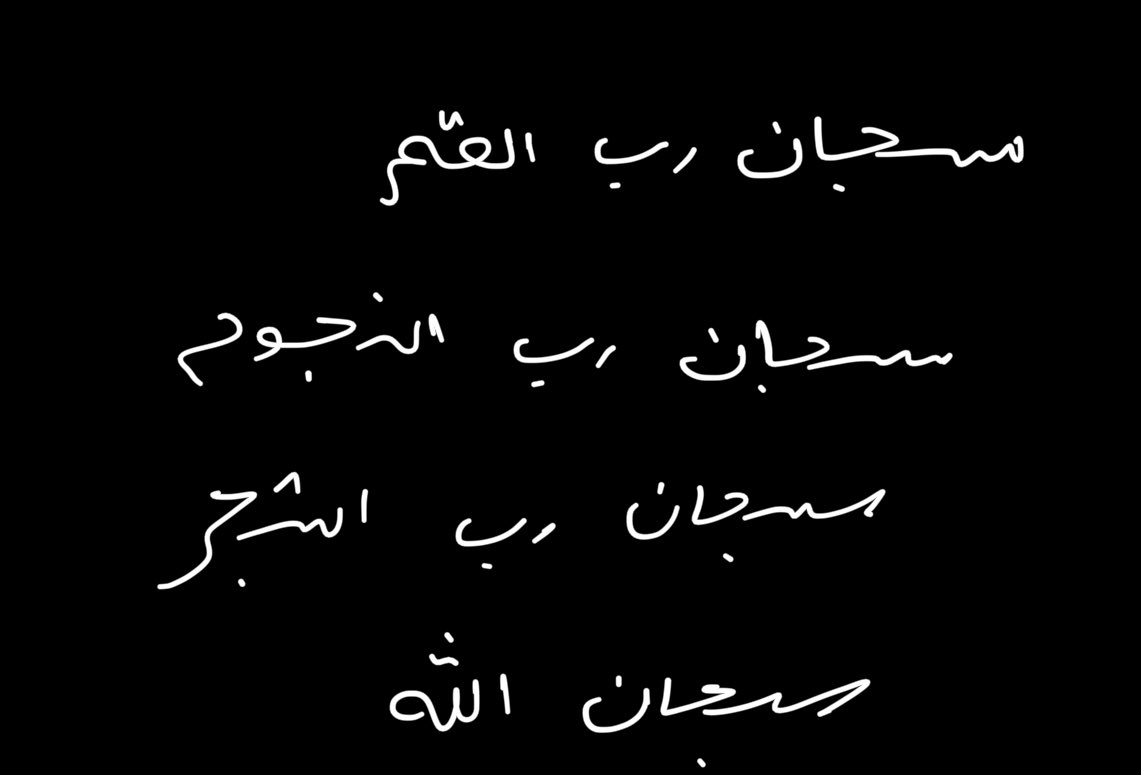 سبحان رب القمر
سبحان رب النجوم
سبحان رب الشجر
سبحان الله